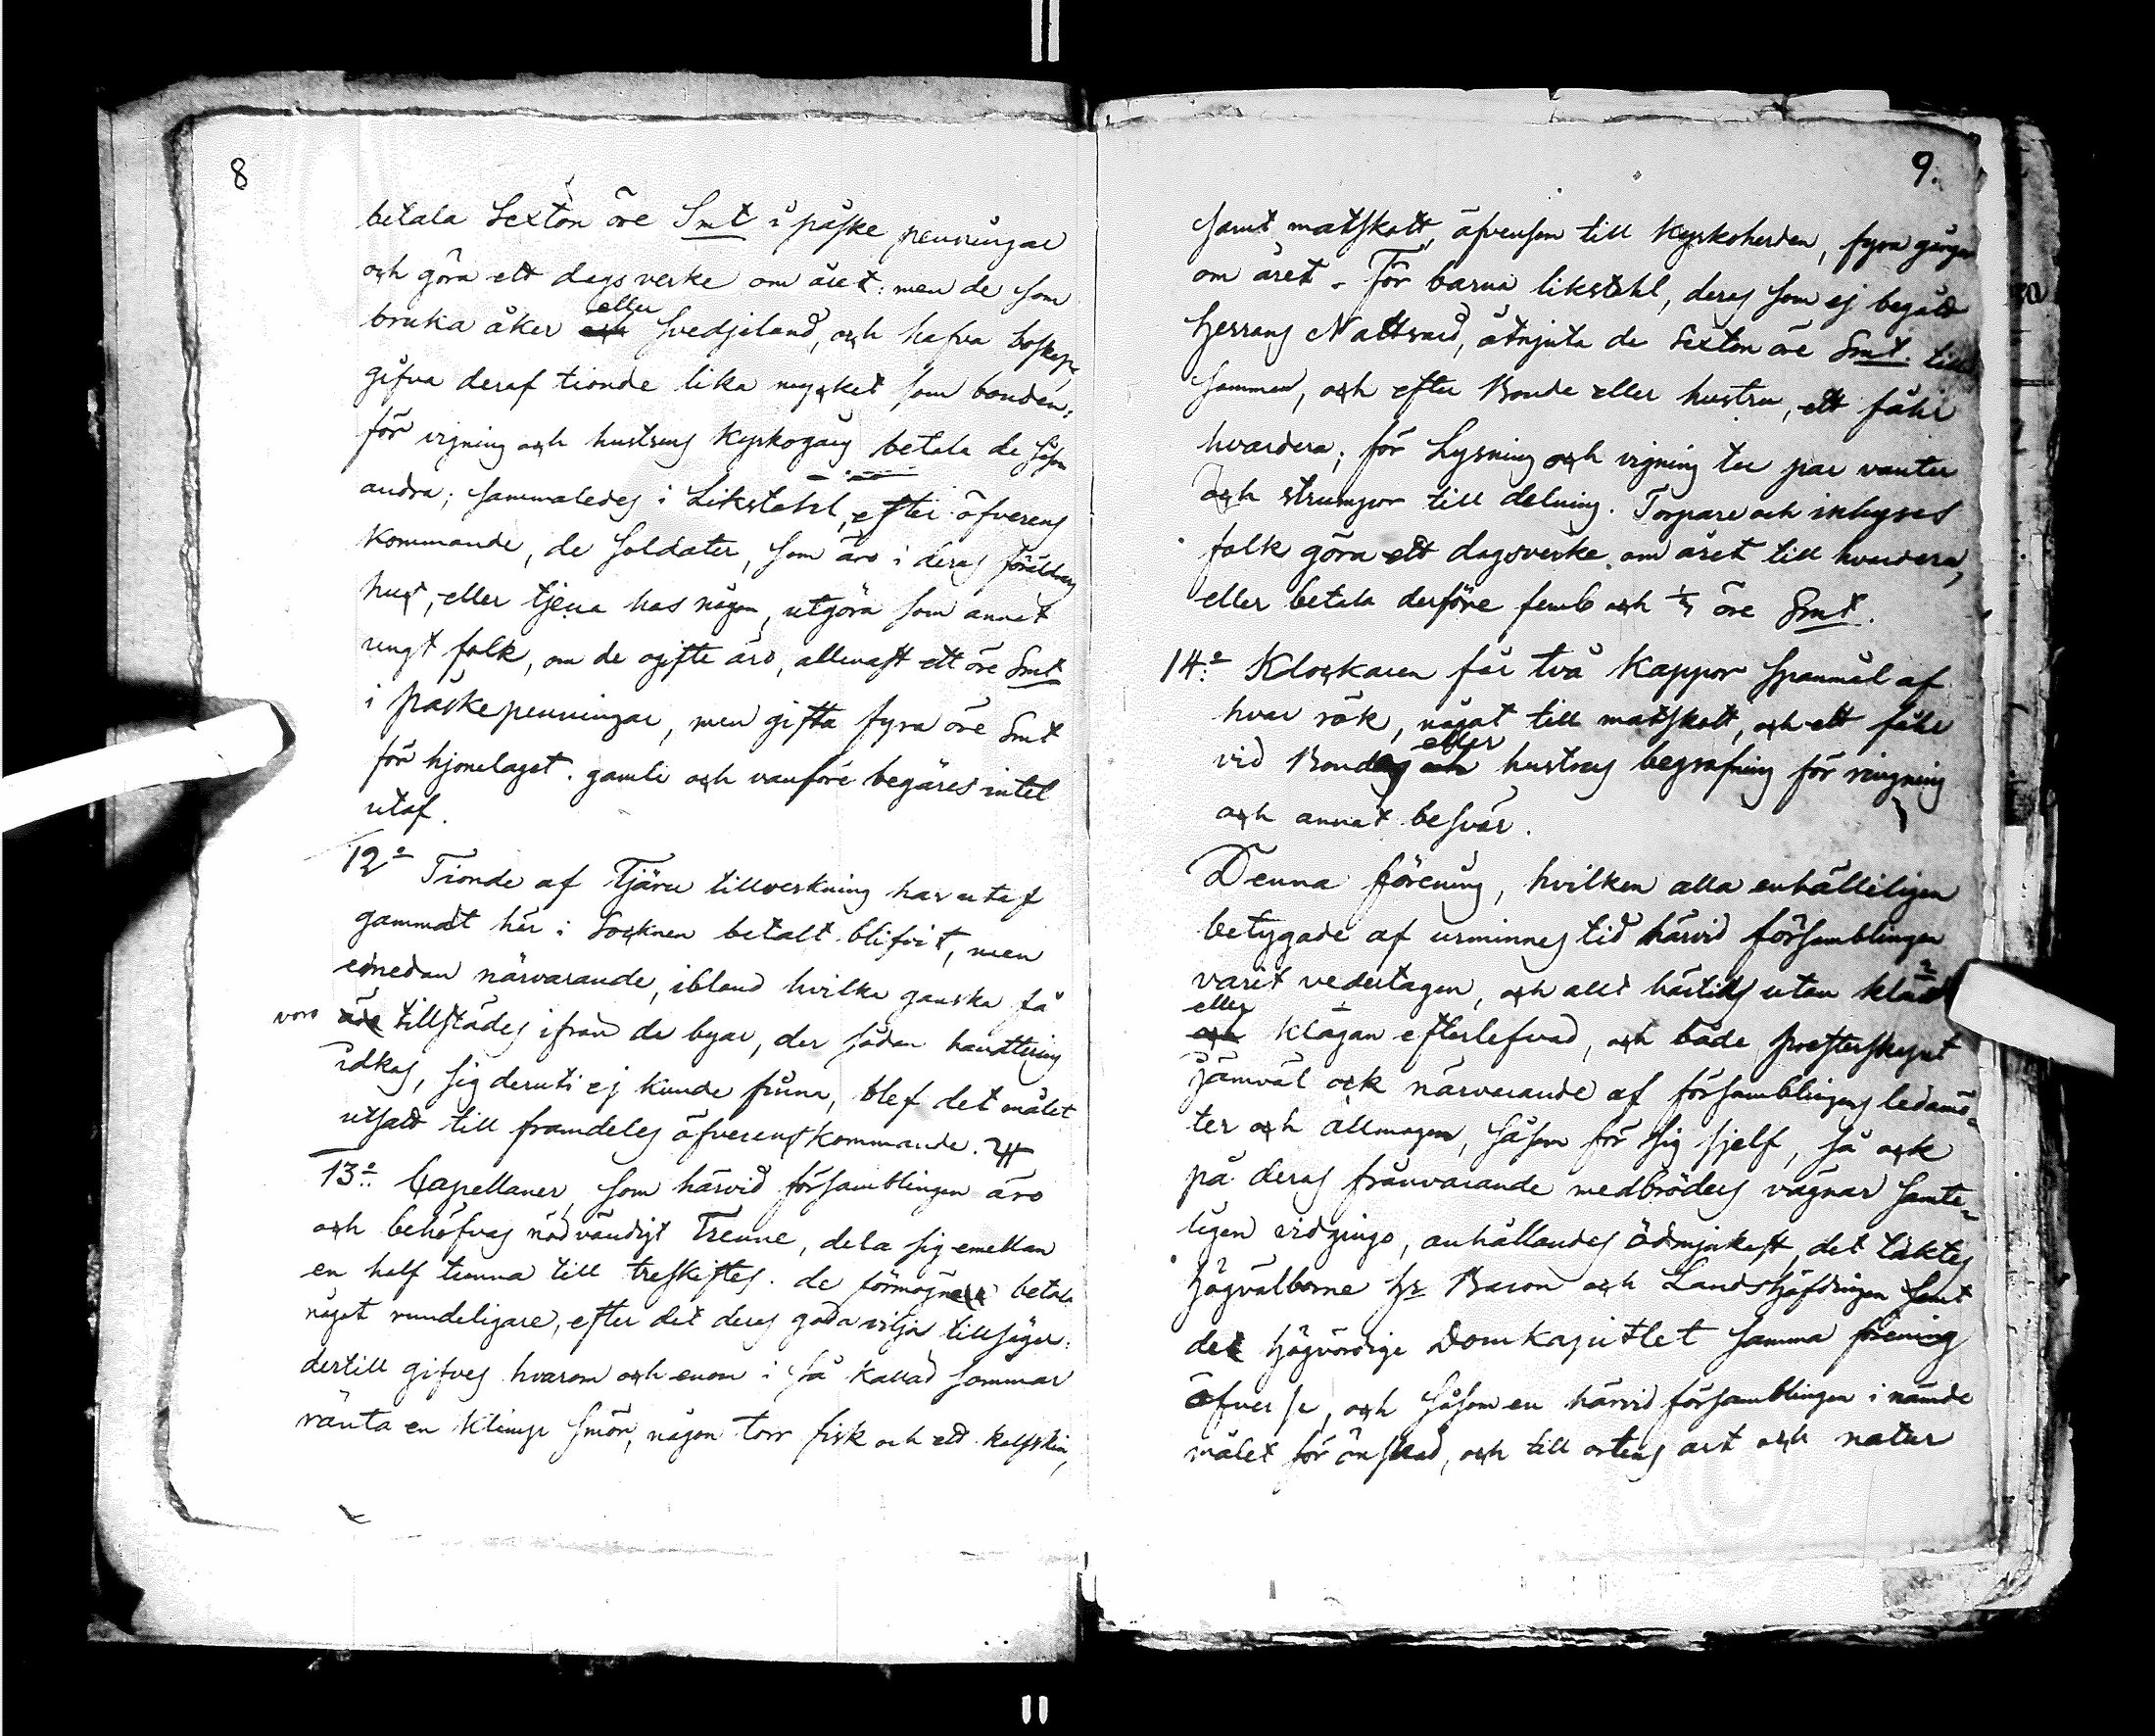 8
betala Sexton öre Smt i påske penningar
och göra ett dagsverke om året: men de som
bruka åker eller Svedjeland, och hafva boskap,
gifva deraf tionde lika mycket som bonden:
för vigning och hustrus Kyrkogång betala de såsom
andra; sammaledes i Likstohl, efter öfverens
kommande, de Soldater, som äro i deras föräldrars
hus, eller tjena hos någon, utgöra som annat
ungt folk, om de ogifte äro, allenast ett öre Smt
i påskepenningar, men gifta fyra öre Smt
för hjonelaget. gamle och vanföre begäres intet
utaf.
12o Tionde af Tjäru tillverkning har utaf
gammalt här i Socknen betalt blifvit, men
emedan närvarande, ibland hvilka ganska få
voro tillstädes ifrån de byar, der sådan handtering
idkas, sig deruti ej kunde finna, blef det målet
utsatt till framdeles öfverenskommande.
13o: Capellaner, som härvid församblingen äro
och behöfvas nödvändigt Trenne, dela sig emellan
en half tunna till treskiftes. de förmögnare betala
något rundeligare, efter det deras goda vilja tillsäger:
dertill gifves hvarom och enom i så kallad sommar
ränta en Klimp Smör, någon torr fisk och ett kalfskin,
9.
samt matskatt, äfvensom till Kyrkoherden, fyra gånger
om året. För barna likstohl, deras som ej begått
Herrans Nattvard, åtnjuta de Sexton öre Smt. till
samman, och efter Bonde eller hustru, ett fåhr
hvardera; för Lysning och vigning par vantar
och strumpor till delning. Torpare och inhyses
folk göra ett dagsverke om året till hvardera,
eller betala derföre femb och ⅓ öre Smt.
14o: Klockaren får två Kappor Spanmål af
hvar rök, något till matskatt, och ett fåhr
vid Bondes eller hustrus begrafning för ringning
och annat besvär.
Denna förening, hvilken alla enhälleligen
betygade af urminnes tid härvid församblingen
varit vedertagen, och allt härtills utan kland
eller klagan efterlefvad, och både presterskapet
jämväl ock närvarande af församblingens ledamö-
ter och allmogen, såsom för sig sjelf, så ock
på deras frånvarande medbröders vägnar samte-
ligen vidgingo, anhållandes ödmjukast, det täktes
Högvälborne Hr Baron och Landshöfdingen samt
det Högvördige Domkapitlet samma förening
öfverse, och såsom en härvid församblingen i nämde
målet för önskad, och till ortens art och natur